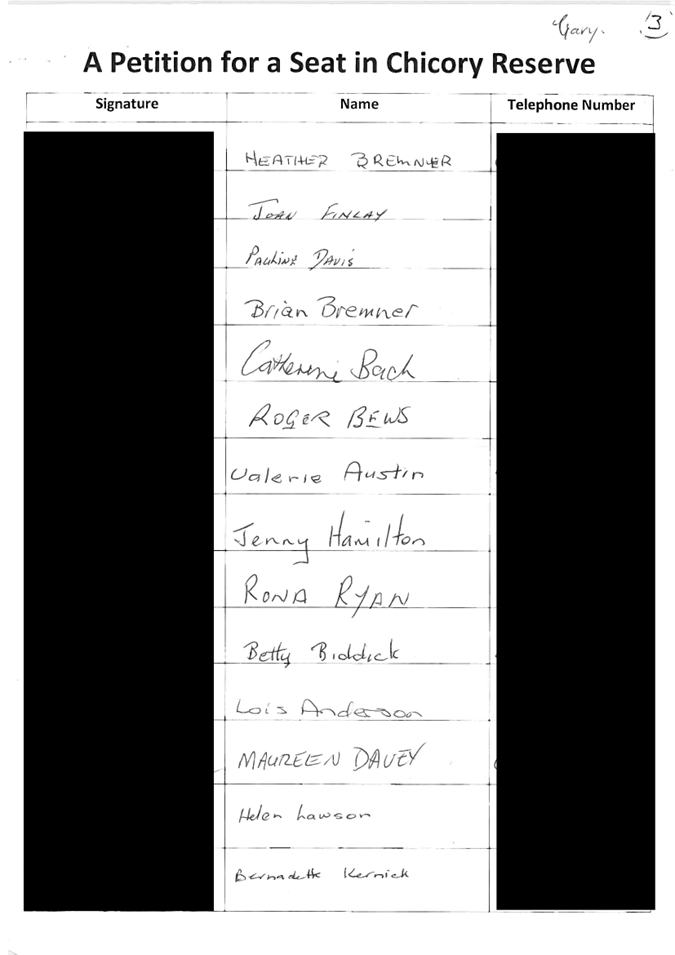 Gary. 3
A Petition for a Seat in Chicory Reserve
Signature Name Telephone Number
HEATHER BREMNER
JOAN FINLAY
PAULINE DAVIS
Brian Bremner
Catherine Bach
ROGER BEWS
Valerie Austin
Jenny Hamilton
RONA RYAN
Betty Biddick
Lois Anderson
MAUREEN DAVEY
Helen Lawson
Bernadette Kernick